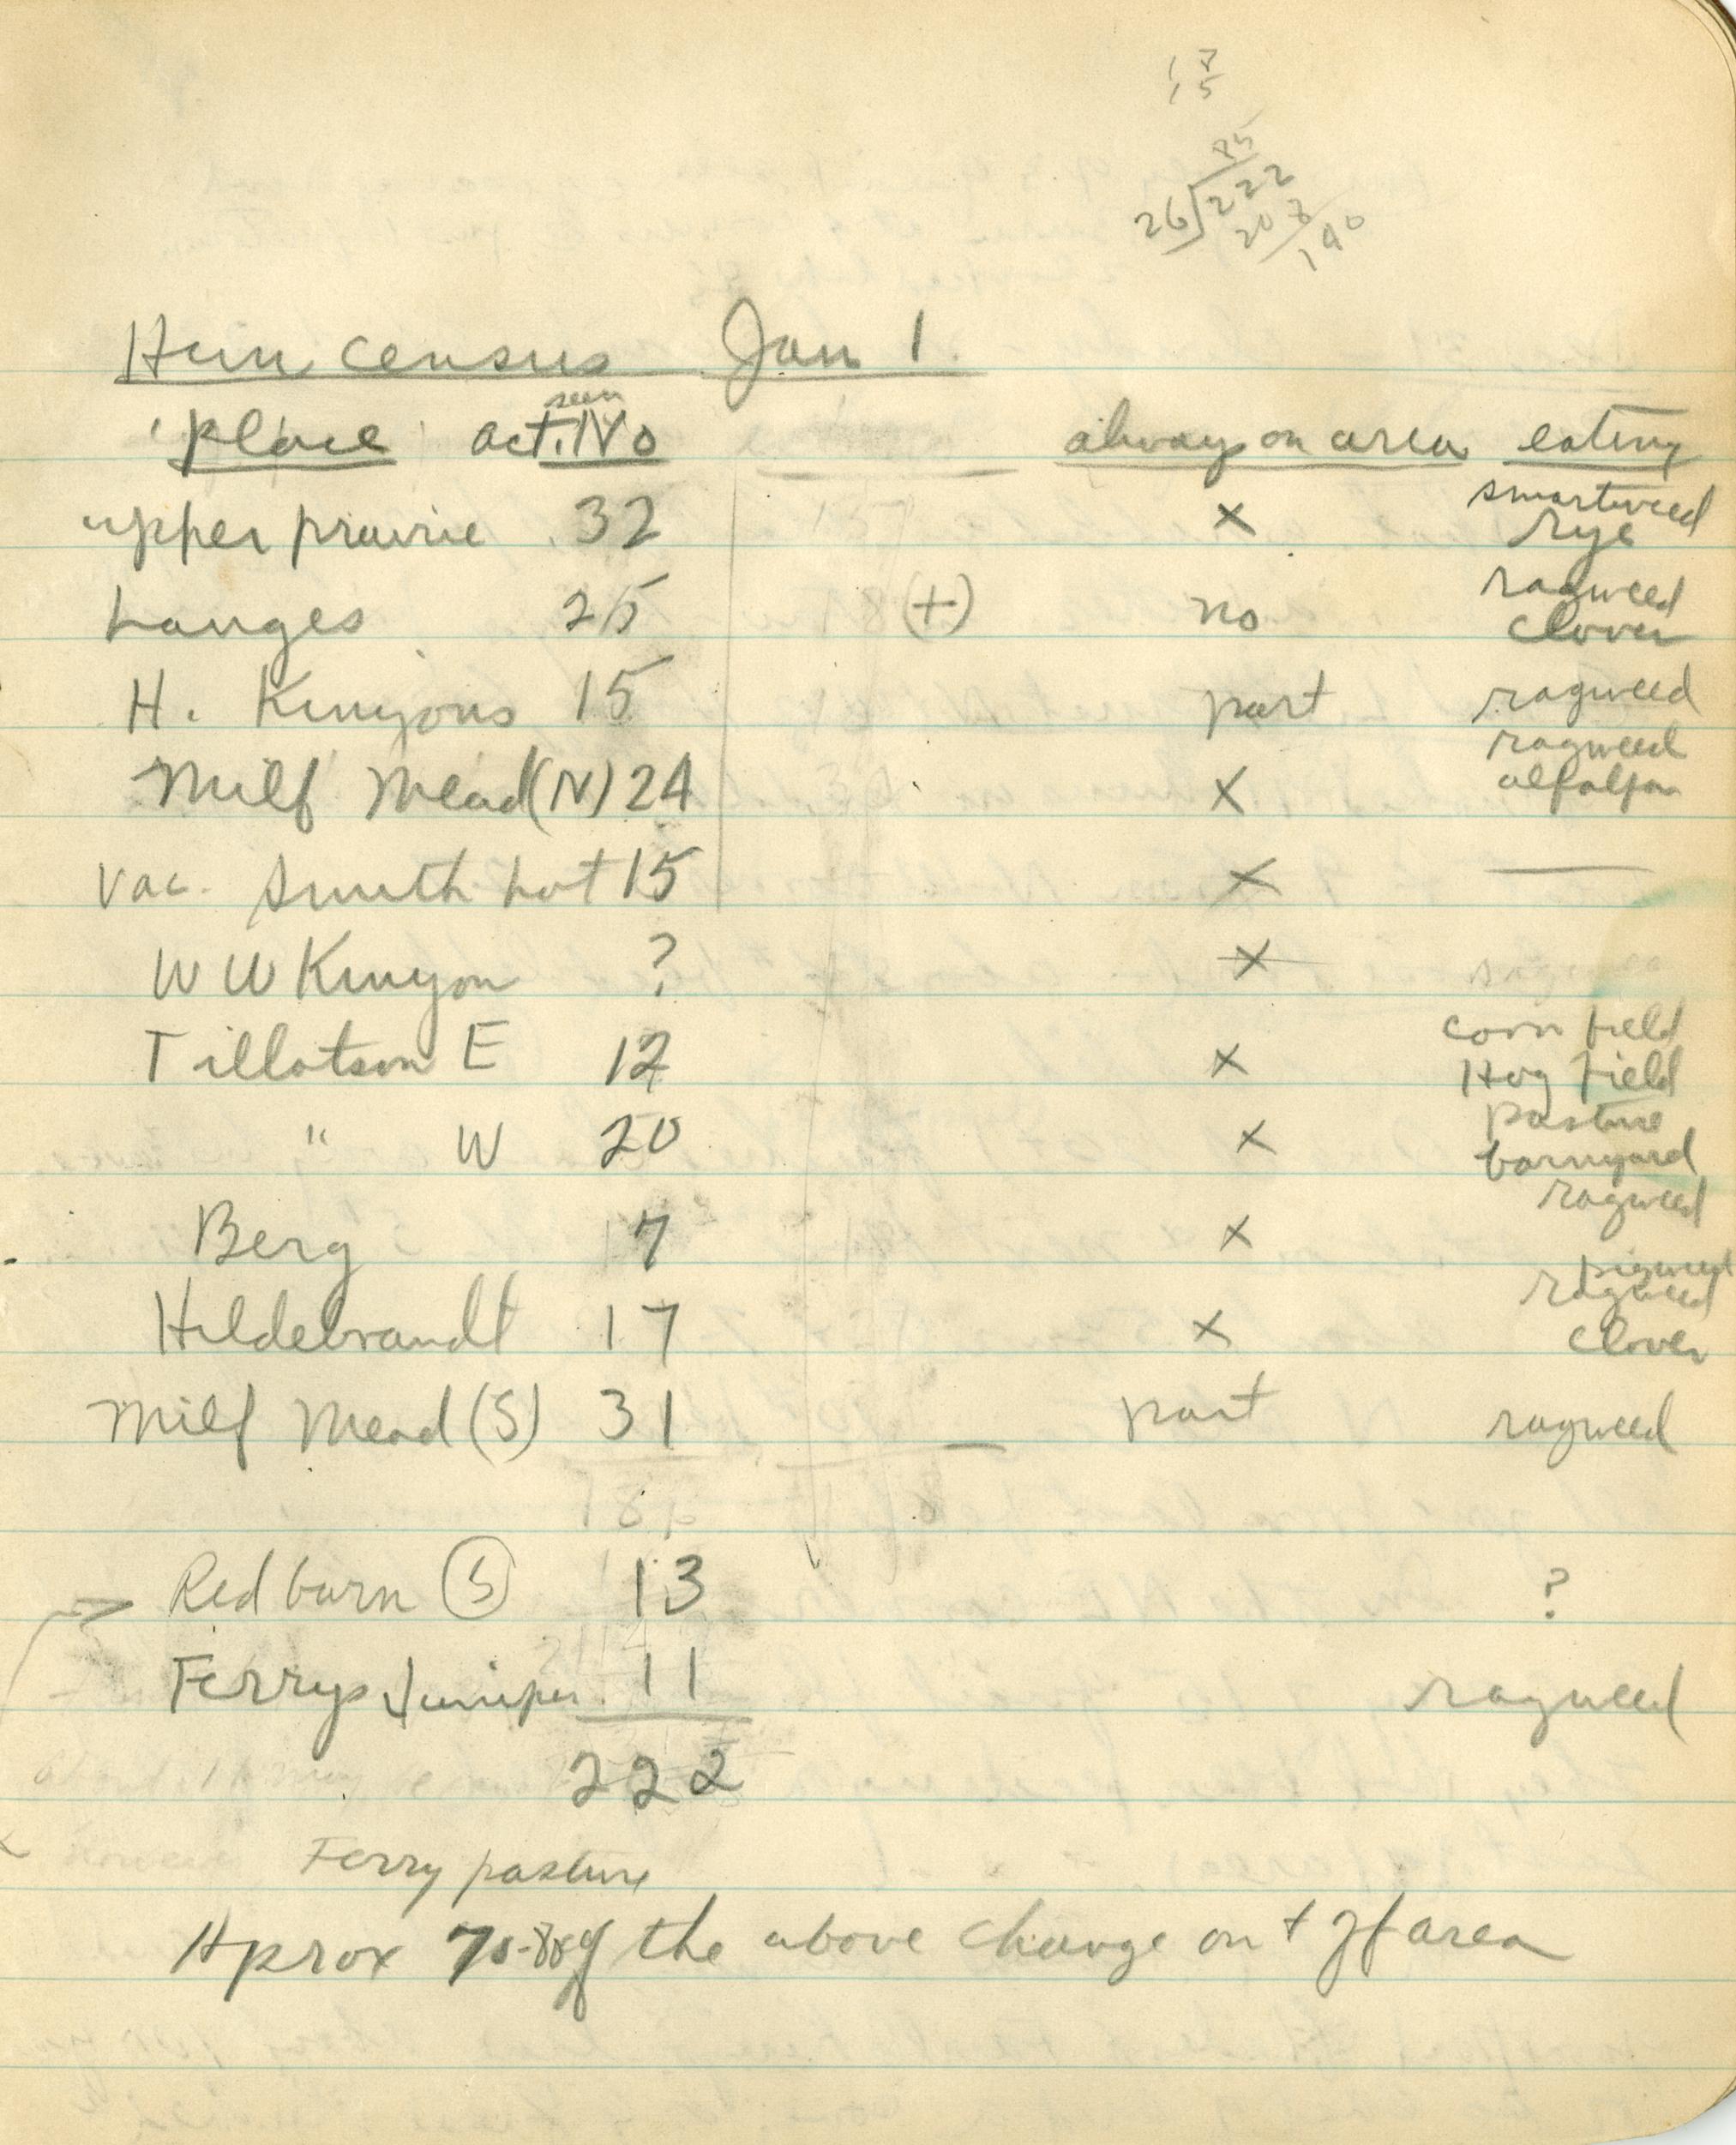 17
15
85
26)222
208
140
Hun census Jan 1
seen
place act. No always on area eating
smartweed
upper prairie 32 x rye
ragweed
Langes 25 (+) no clover
H. Kinyons 15 part ragweed
ragweed
Milf Mead (N) 24 x alfalfa
Vac. Smith Lot 15 x —
W W Kinyon ? x
corn field
Tillotson E 12 x Hog field
pasture
" W 20 x barnyard
ragweed
Berg 7 x
pigweed
ragweed
Hildebrandt 17 x clover
Milf Mead (S) 31 — part ragweed
181
→ Red barn (S) 13 ?
Ferrys Juniper 11 ragweed
222
Ferry pasture
Aprox 70-80 of the above change on + off area